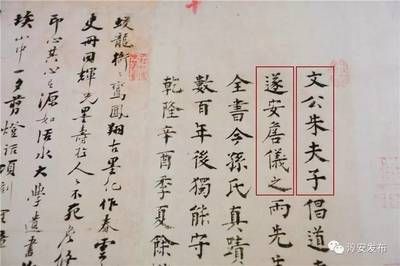 文公朱夫子倡道
遂安詹儀之兩先生
全書今孫氏真蹟
數百年後獨能守
乾隆辛酉季夏餘
龍 鸞鳳翔古墨化作春雲
更 回輝光 壽在人 不死詹
印心其心 源如活水大學遺書
埃山中一夕剪燈話
淳安发布